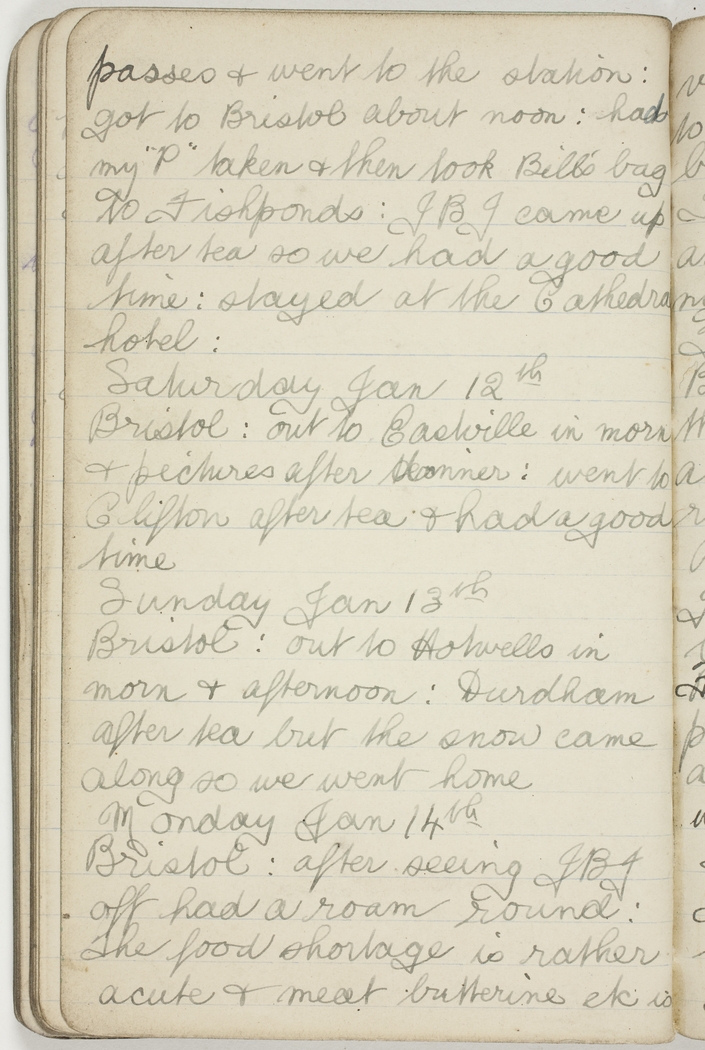 passes & went to the station:
got to Bristol about noon: had
my "P" taken & then took Bill's bag
to Fishponds: JBJ came up
after tea so we had a good
time: stayed at the Cathedra
hotel:
Saturday Jan 12th
Bristol: out to Eastville in morn
& pictures after dinner: went to
Clifton after tea & had a good
time
Sunday Jan 13th
Bristol: out to Hotwells in
morn & afternoon: Durdham
after tea but the snow came
along so we went home
Monday Jan 14th
Bristol: after seeing JBJ
off had a roam round:
The food shortage is rather
acute & meat butterine etc is